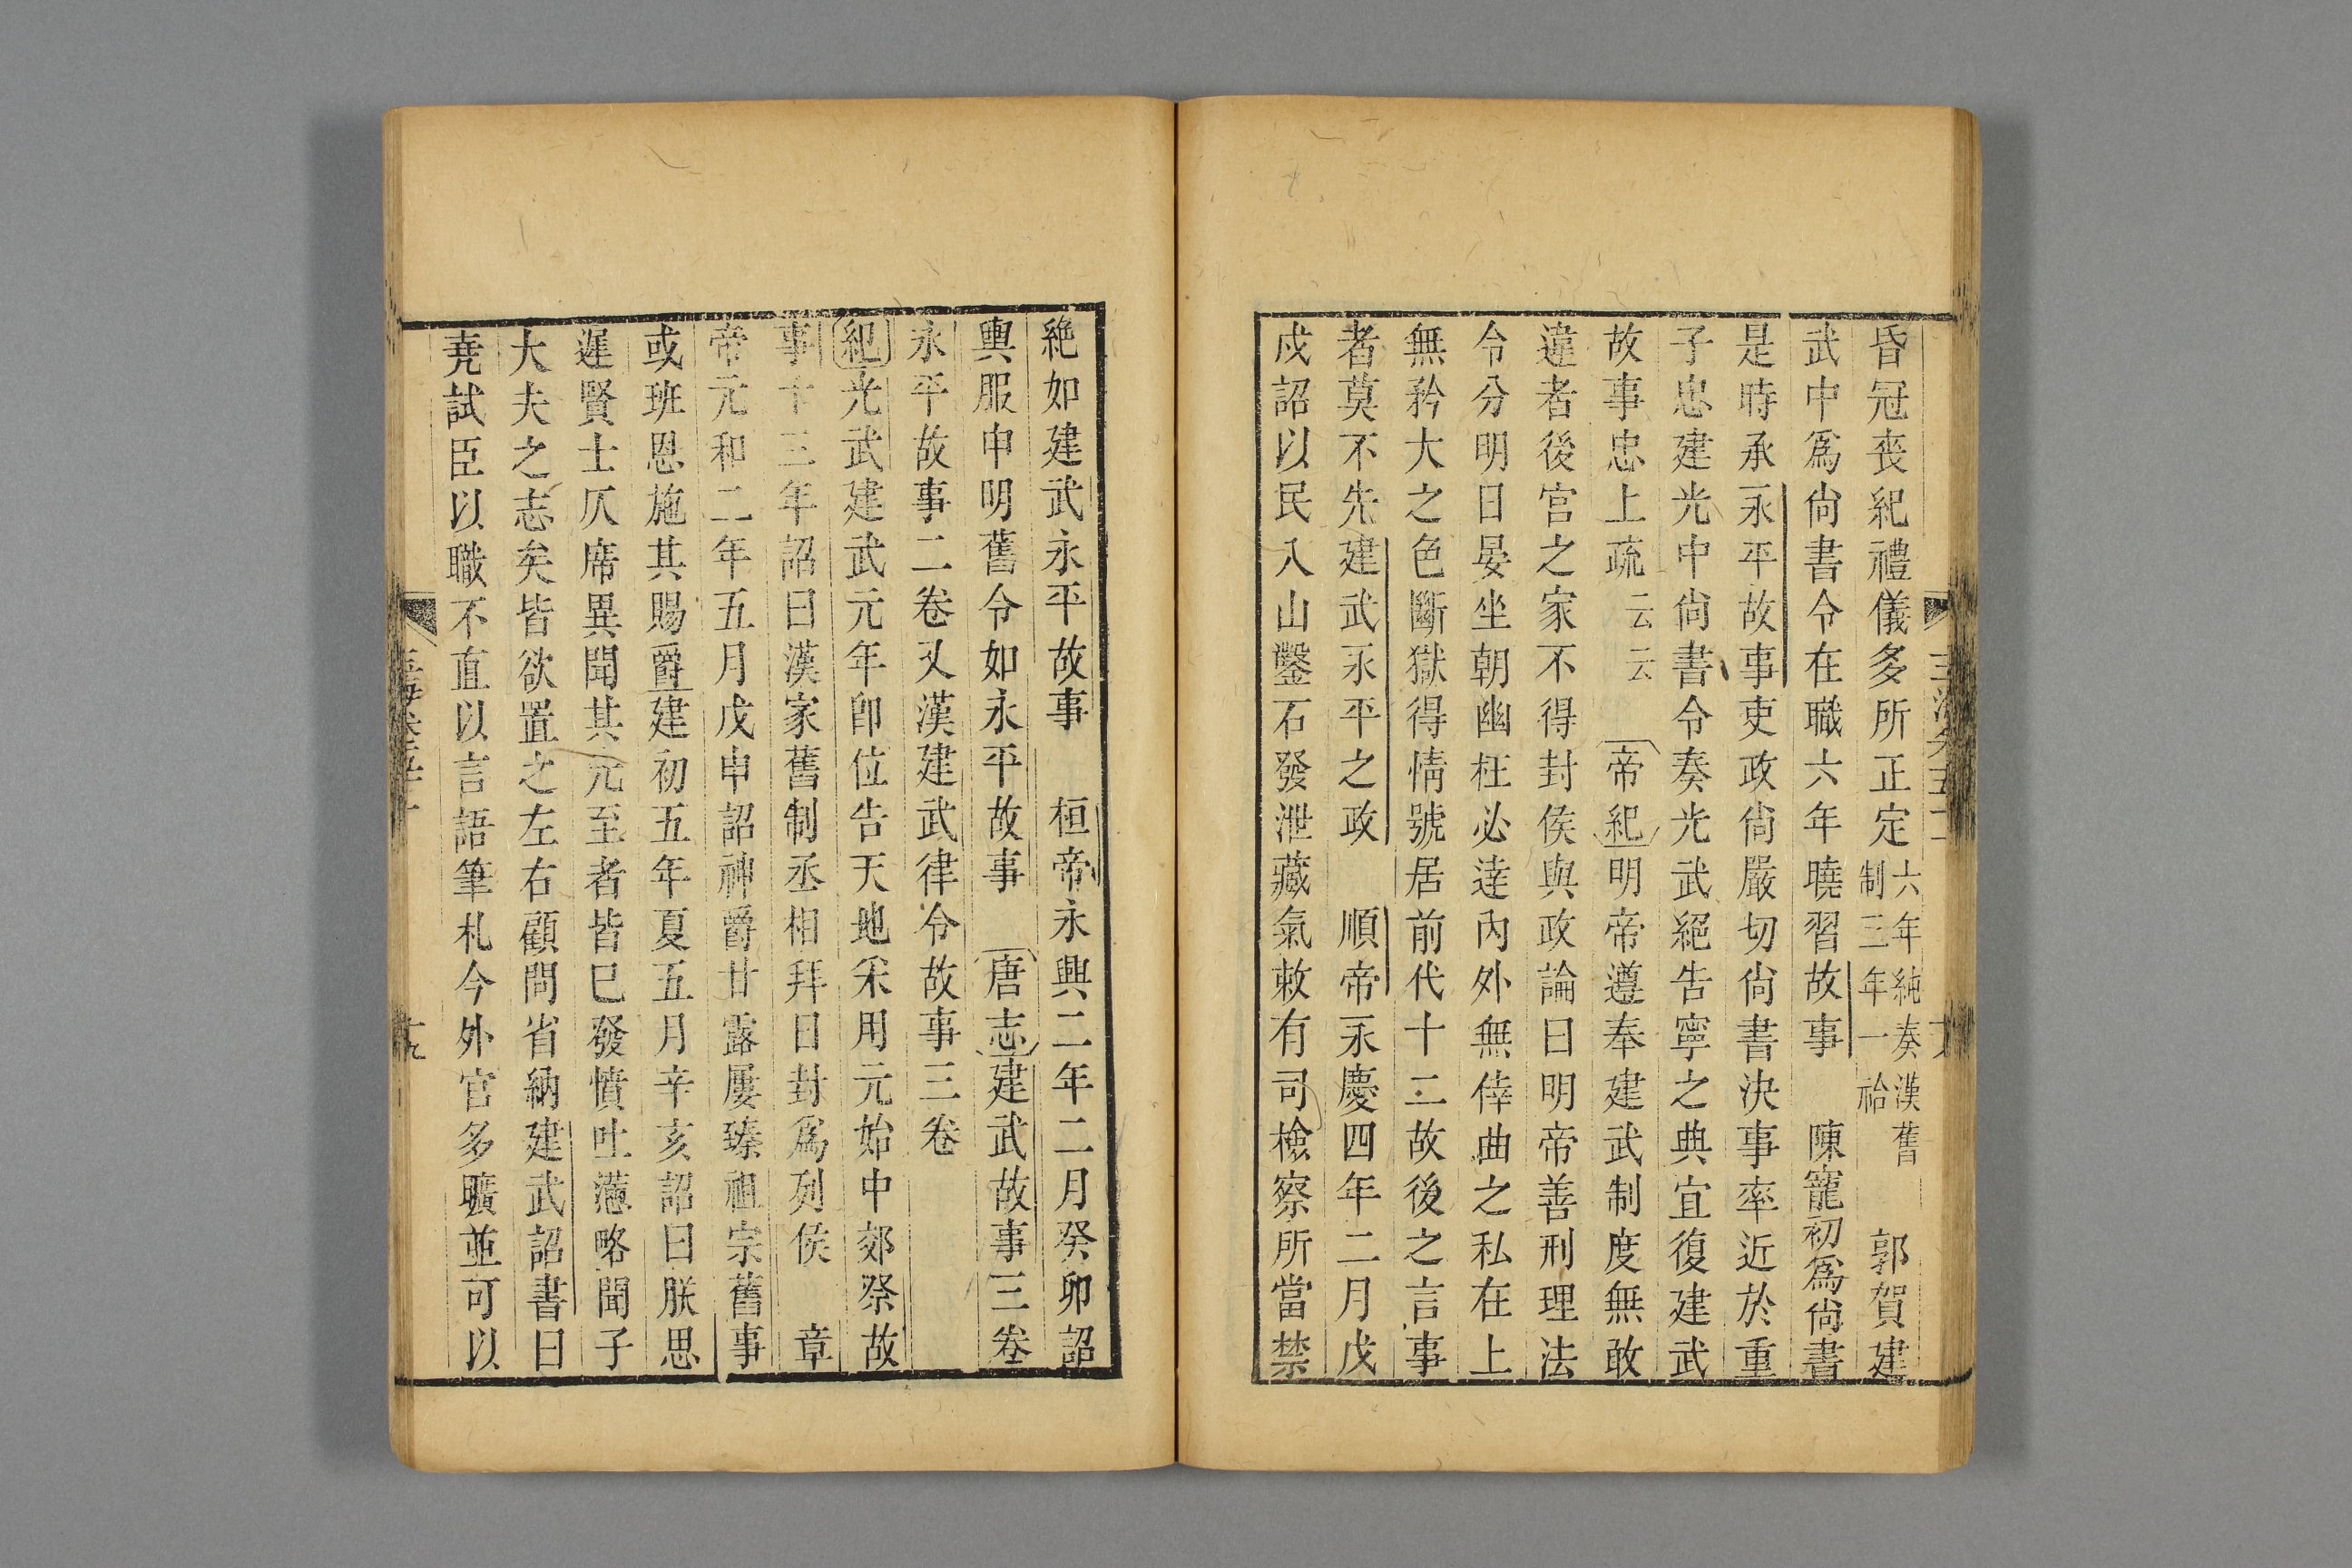 昏冠喪紀禮儀多所正定六年純奏漢舊制三年一祫　郭賀建
武中爲尙書令在職六年曉習故事　陳寵初爲尙書
是時承永平故事吏政尙嚴切尙書決事率近於重
子忠建光中尙書令奏光武絕告寧之典宜復建武
故事忠上疏云云　帝紀明帝遵奉建武制度無敢
違者後宮之家不得封侯與政論曰明帝善刑理法
令分明日晏坐朝幽枉必達內外無倖曲之私在上
無矜大之色斷獄得情號居前代十二故後之言事
者莫不先建武永平之政　順帝永慶四年二月戊
戌詔以民入山鑿石發泄藏氣敕有司檢察所當禁
絶如建武永平故事　桓帝永興二年二月癸卯詔
輿服申明舊令如永平故事　唐志建武故事三卷
永平故事二卷又漢建武律令故事三卷
紀光武建武元年卽位告天地采用元始中郊祭故
事十三年詔曰漢家舊制丞相拜日封爲列侯　章
帝元和二年五月戊申詔神爵甘露屢臻祖宗舊事
或班恩施其賜爵建初五年夏五月辛亥詔曰朕思
遲賢士仄席異聞其先至者皆已發憤吐懣略聞子
大夫之志矣皆欲置之左右顧問省納建武詔書曰
堯試臣以職不直以言語筆札今外官多曠並可以